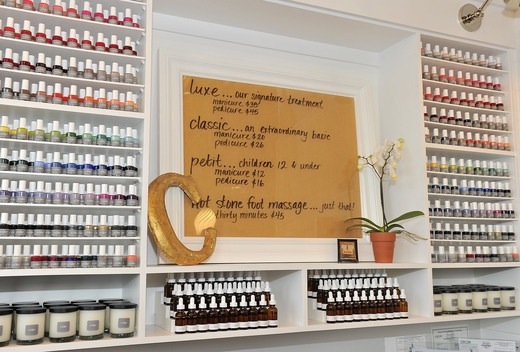 luxe... our signature treatment
manicure $35
pedicure $45
classic... an extraordinary basic
manicure $20
pedicure $26
petit... children 12 & under
manicure $12
pedicure $16
hot stone foot massage... just that!
thirty minutes $45